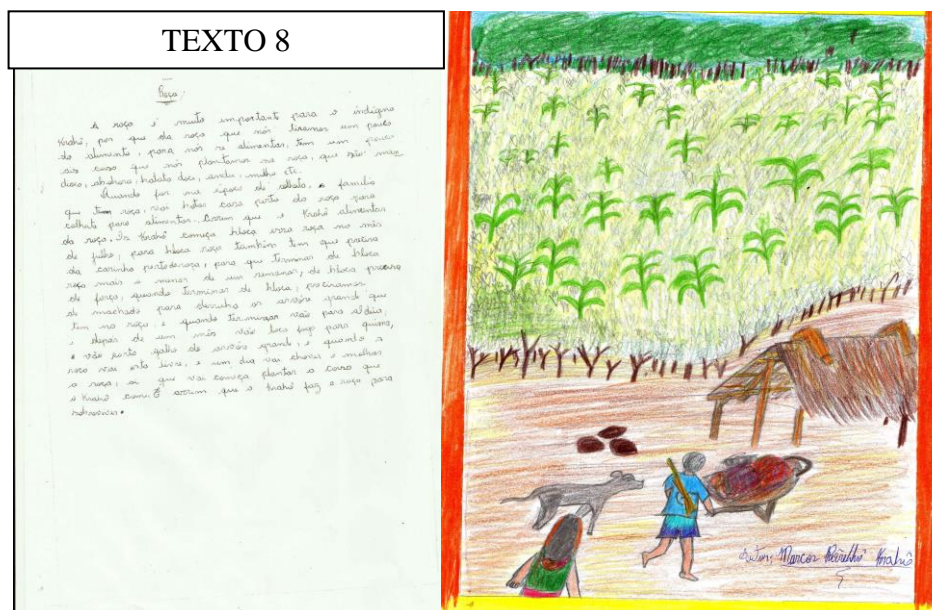 TEXTO 8
Roça
A roça é muito important para o indigna
Krahô, por que da roça que nós tiramos um pouco
do alimento, para nós se alimentar, tem um pouco
que nós plantamos na roça, que são man
dioca, abobora, batata doce, milho etc.
Quando for na época de colheta, a família
que tem roça, vai botar casa perto da roça para
colheta para alimentar. Assim que o Krahô alimentar
da roça. Os Krahô começa bloca roça no mês
de julho, para bloca roça também tem que precisa
da carinho roça, para que terminar de bloca
roça mais o menor de um semanar, de bloca precisa
de força, quando terminar de bloca, precisamos
de machado para os arvore grand que
tem na roça, e quando terminar vais para aldeia,
e depois de um mês vais toca fogo para quiema,
e vão corta galho de arvores grand, e quando a
roça vai esta livre, e um dia vai chover e molhar
a roça, ai que vai começa plantar a que
o Krahô come. É assim que o Krahô faz a roça para
sobreviver.
Autor, Marcos Krahô